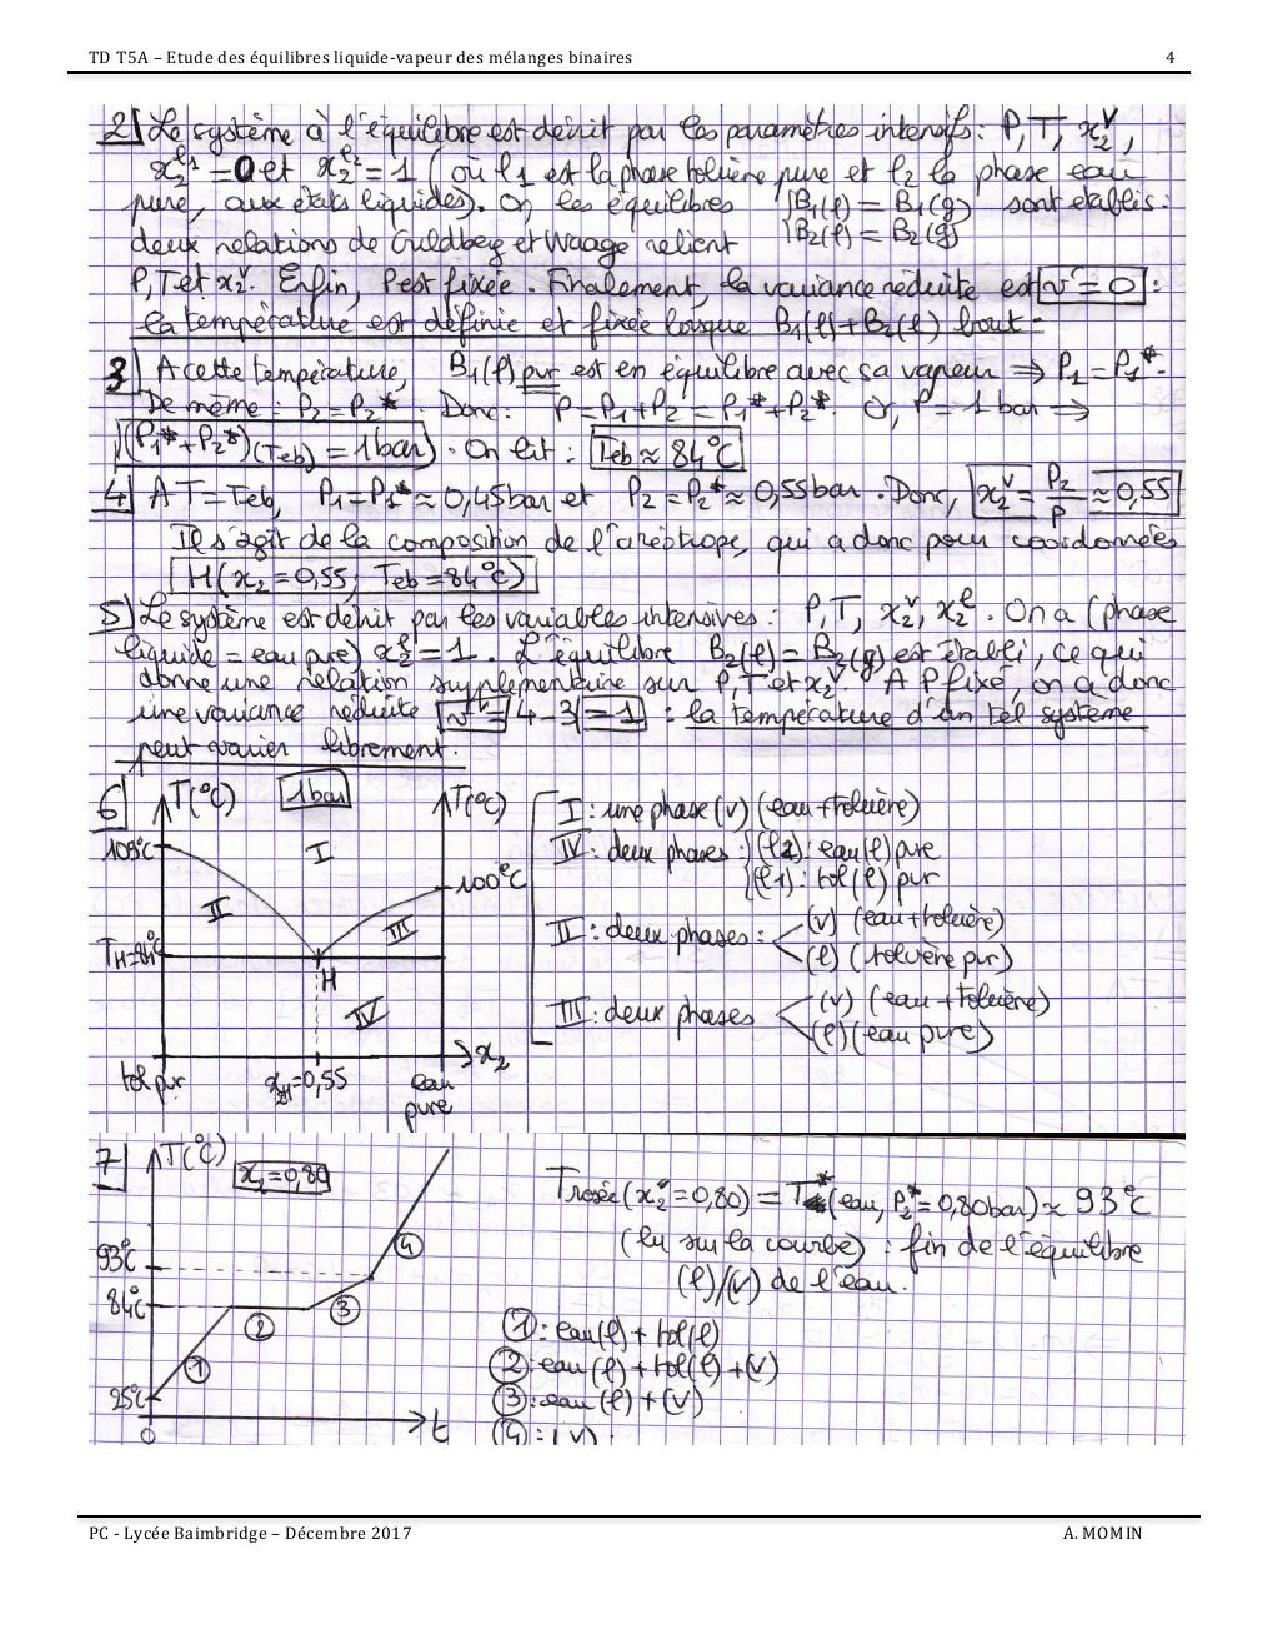 TD T5A – Etude des équilibres liquide-vapeur des mélanges binaires 4
2) Le système à l'équilibre est décrit par les paramètres intensifs : P, T, x₂ᵛ,
x₂ˡ¹ = 0 et x₂ˡ² = 1 (où l1 est la phase toluène pure et l2 la phase eau
pure, aux états liquides). Or, les équilibres |B₁(l) = B₁(g) sont établis :
|B₂(l) = B₂(g)
deux relations de Guldberg et Waage relient
P, T et x₂ᵛ. Enfin, P est fixée. Finalement, la variance réduite est v' = 0 :
la température est définie et fixée lorsque B₁(l)+B₂(l) bout.
3) A cette température, B₁(l) pur est en équilibre avec sa vapeur ⇒ P₁ = P₁*.
De même : P₂ = P₂*. Donc : P = P₁+P₂ = P₁*+P₂*. Or, P = 1 bar ⇒
(P₁*+P₂*)(Teb) = 1bar. On lit : Teb ≈ 84°C
4) A T=Teb, P₁=P₁* ≈ 0,45bar et P₂ = P₂* ≈ 0,55bar. Donc, x₂ᵛ = P₂/P ≈ 0,55
Il s'agit de la composition de l'azéotrope, qui a donc pour coordonnées
H(x₂=0,55; Teb=84°C)
5) Le système est décrit par les variables intensives : P, T, x₂ᵛ, x₂ˡ. On a (phase
liquide = eau pure) x₂ˡ=1. L'équilibre B₂(l) = B₂(g) est établi, ce qui
donne une relation supplémentaire sur P, T et x₂ᵛ. A P fixé, on a donc
une variance réduite v' = 4-3 = 1 : la température d'un tel système
peut varier librement.
6) T(°C) 1bar T(°C)
I : une phase (v) (eau+toluène)
108°C I
IV : deux phases : (l2) : eau(l) pure
(l1) : tol(l) pur
100°C
II
III
II : deux phases : (v) (eau+toluène)
(l) (toluène pur)
TH=84°C
H
IV
III : deux phases (v) (eau+toluène)
(l) (eau pure)
x₂
tol pur xH=0,55 eau
pure
7) T(°C) x₂=0,80
Trosée(x₂ᵛ=0,80) = T*(eau, P₂*=0,80bar) ≈ 93°C
(lu sur la courbe) : fin de l'équilibre
(l)/(v) de l'eau.
93°C ④
84°C ② ③
①
25°C
0 t
① : eau(l) + tol(l)
② : eau(l) + tol(l) + (v)
③ : eau(l) + (v)
④ : (v).
PC - Lycée Baimbridge – Décembre 2017 A. MOMIN